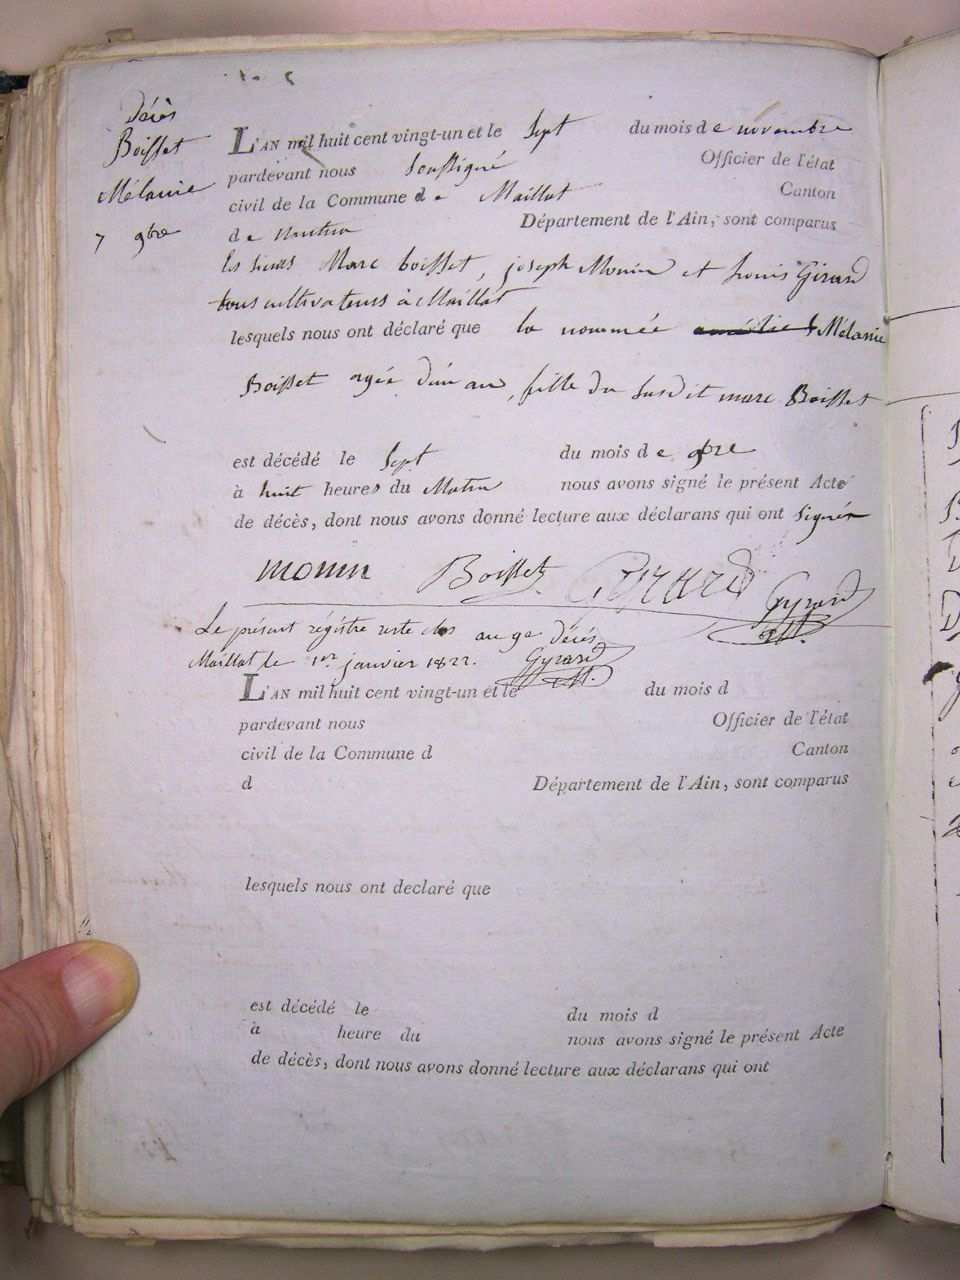 Décès
Boisset
Mélanie
7 9bre
L'AN mil huit cent vingt-un et le Sept du mois de novembre
pardevant nous Soussigné Officier de l'état
civil de la Commune de Maillat Canton
de nantua Département de l'Ain, sont comparus
les sieurs Marc boisset, joseph Monin et Louis Girard
tous cultivateurs à Maillat
lesquels nous ont déclaré que la nommée amélie Mélanie
Boisset agée d'un an, fille du susdit marc Boisset
est décédé le Sept du mois de 9bre
à huit heures du Matin nous avons signé le présent Acte
de décès, dont nous avons donné lecture aux déclarans qui ont signés
monin Boisset GIRARD Gyrard
adt.
Le présent régistre reste clos au 9e Décès
Maillat le 1er janvier 1822. Gyrard
adt.
L'AN mil huit cent vingt-un et le du mois d
pardevant nous Officier de l'état
civil de la Commune d Canton
d Département de l'Ain, sont comparus
lesquels nous ont declaré que
est décédé le du mois d
à heure du nous avons signé le présent Acte
de décès, dont nous avons donné lecture aux déclarans qui ont